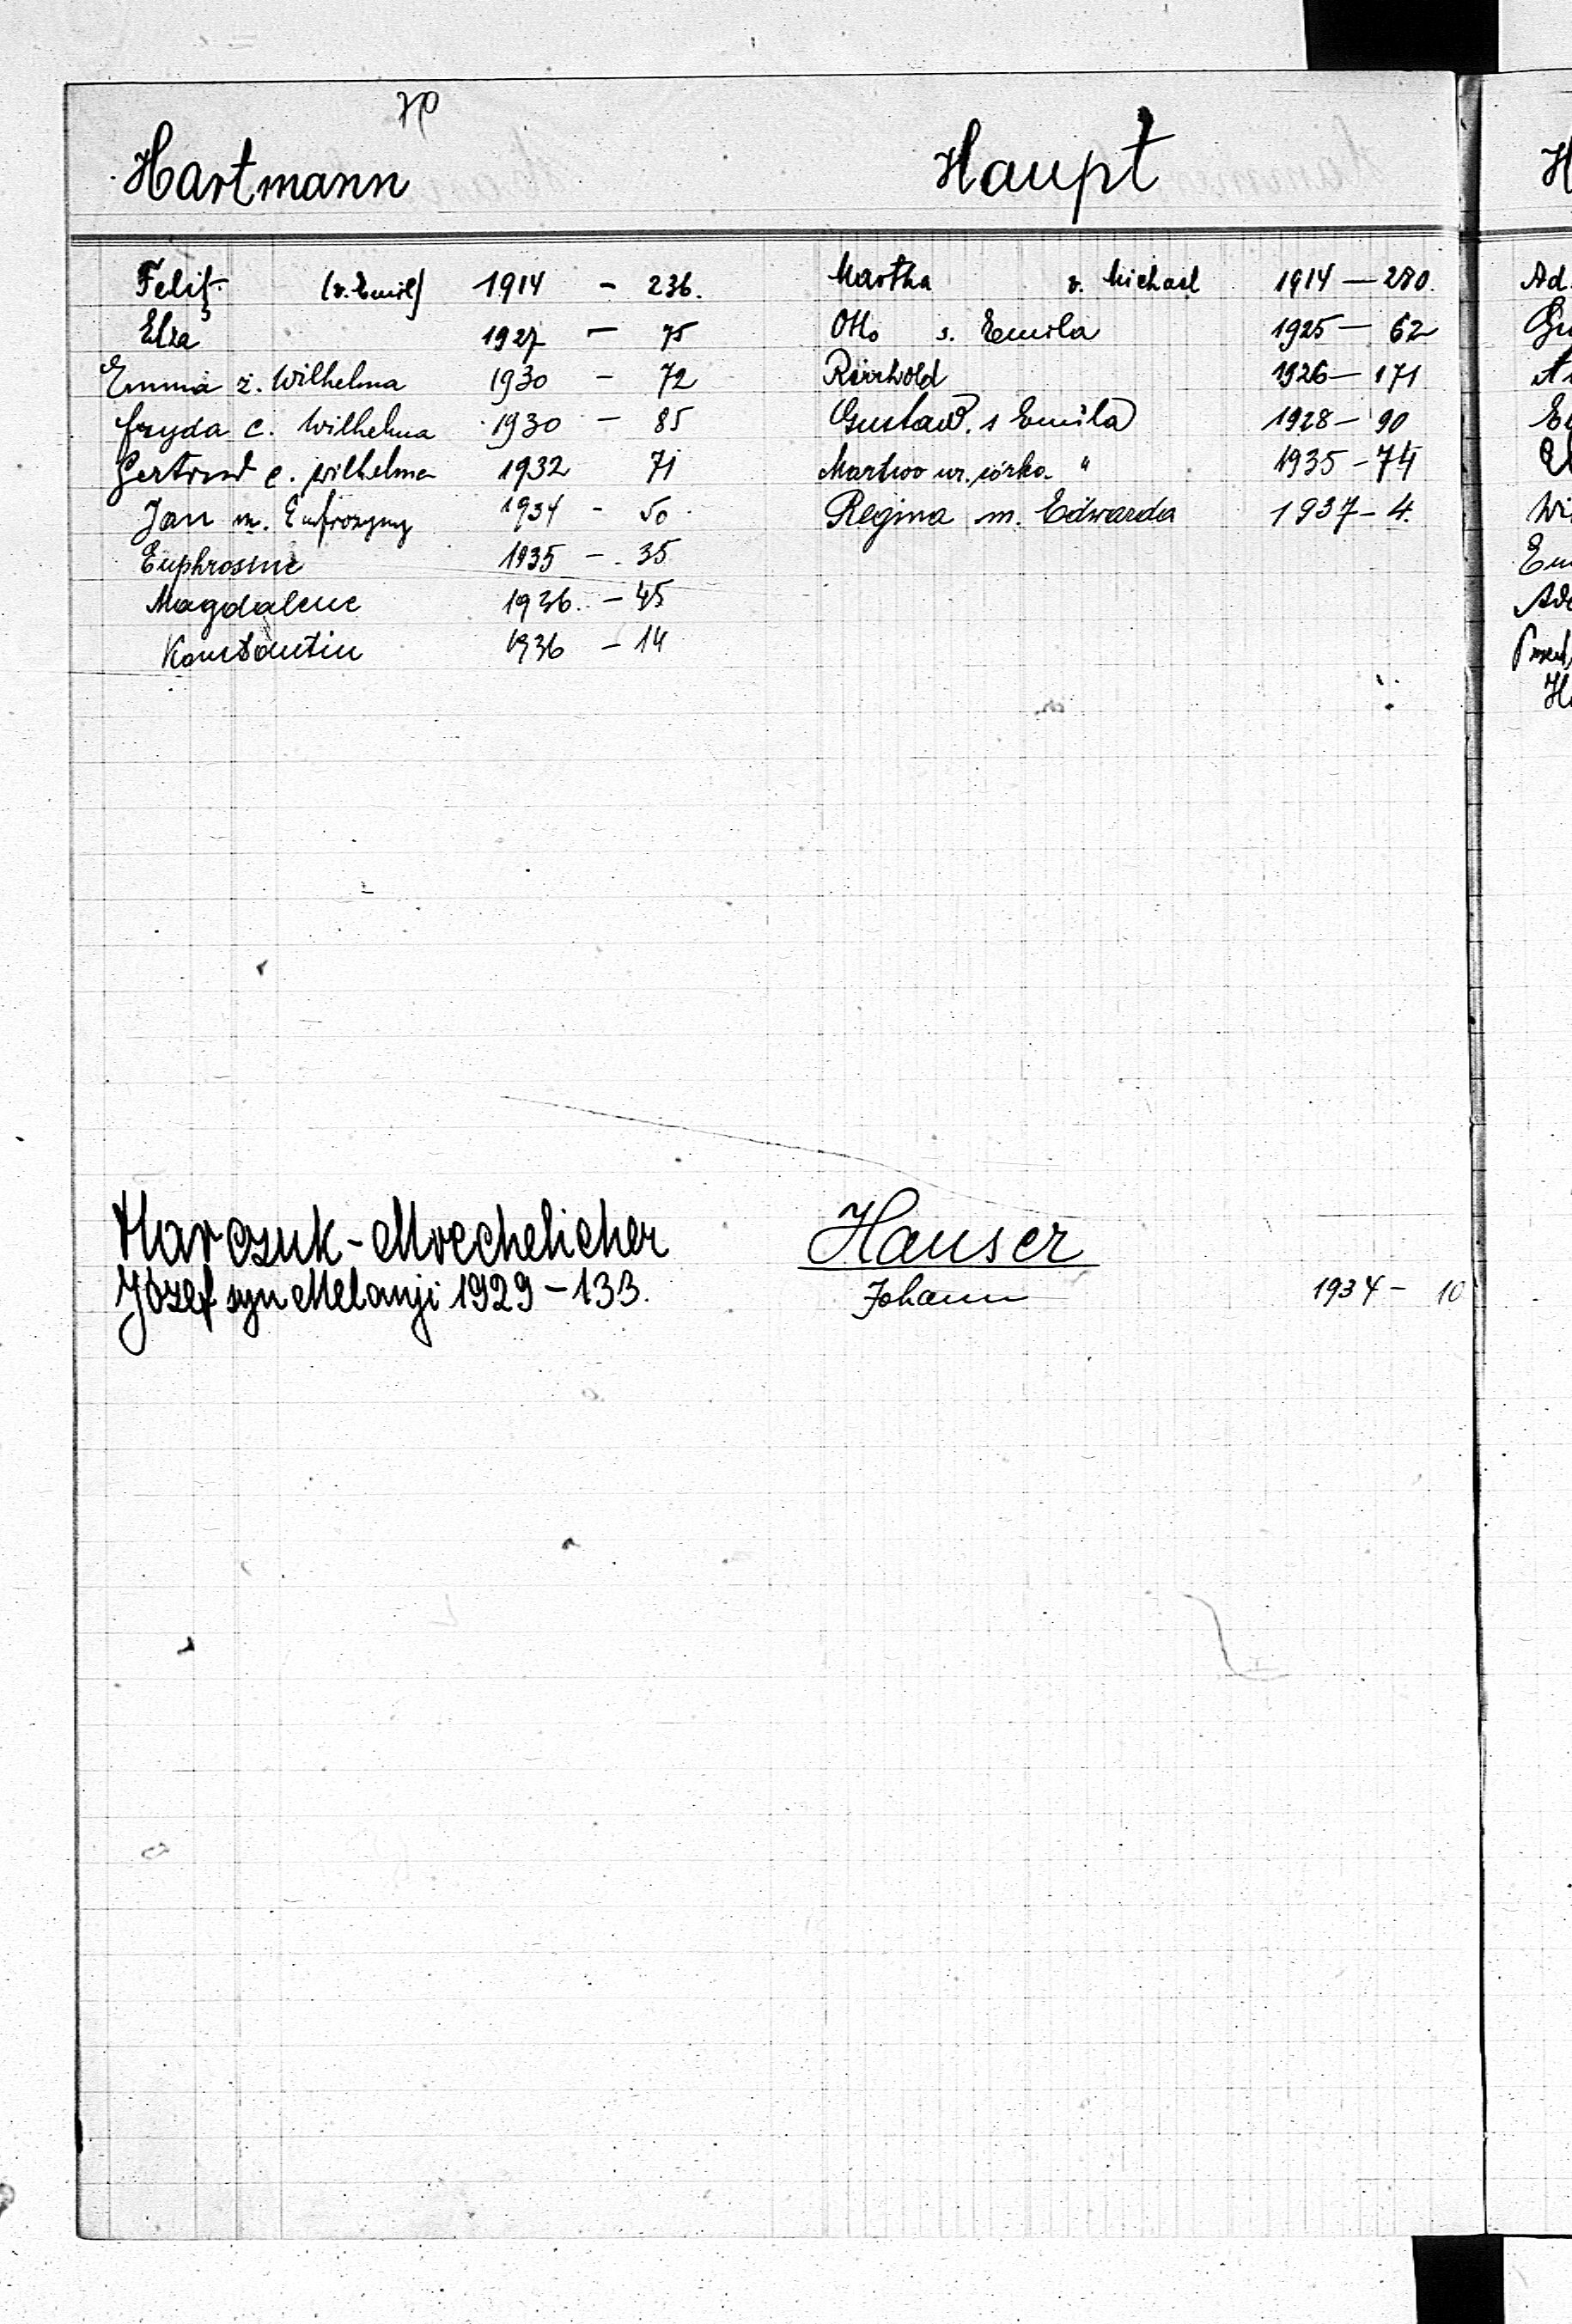 Hartmann
Felix (v. Emil) 1914 - 236.
Elza 1927 - 75
Emma ż. Wilhelma 1930 - 72
Fryda c. Wilhelma 1930 - 85
Gertrud c. Wilhelma 1932 71
Jan m. Eufrozyny 1934 - 50
Euphrosine 1935 - 35
Magdalene 1936. - 45
Konstantin 1936 - 14
Harczuk-
Józef syn Melanji 1929 - 133.
Haupt
Martha v. Michael 1914 - 280.
Otto s. Emila 1925 - 62
1926 - 171
Gustaw. s Emila 1928 - 90
Martwo ur. córka " 1935 - 74
Regina m. Edwarda 1937 - 4.
Hauser
Johann 1934 - 10